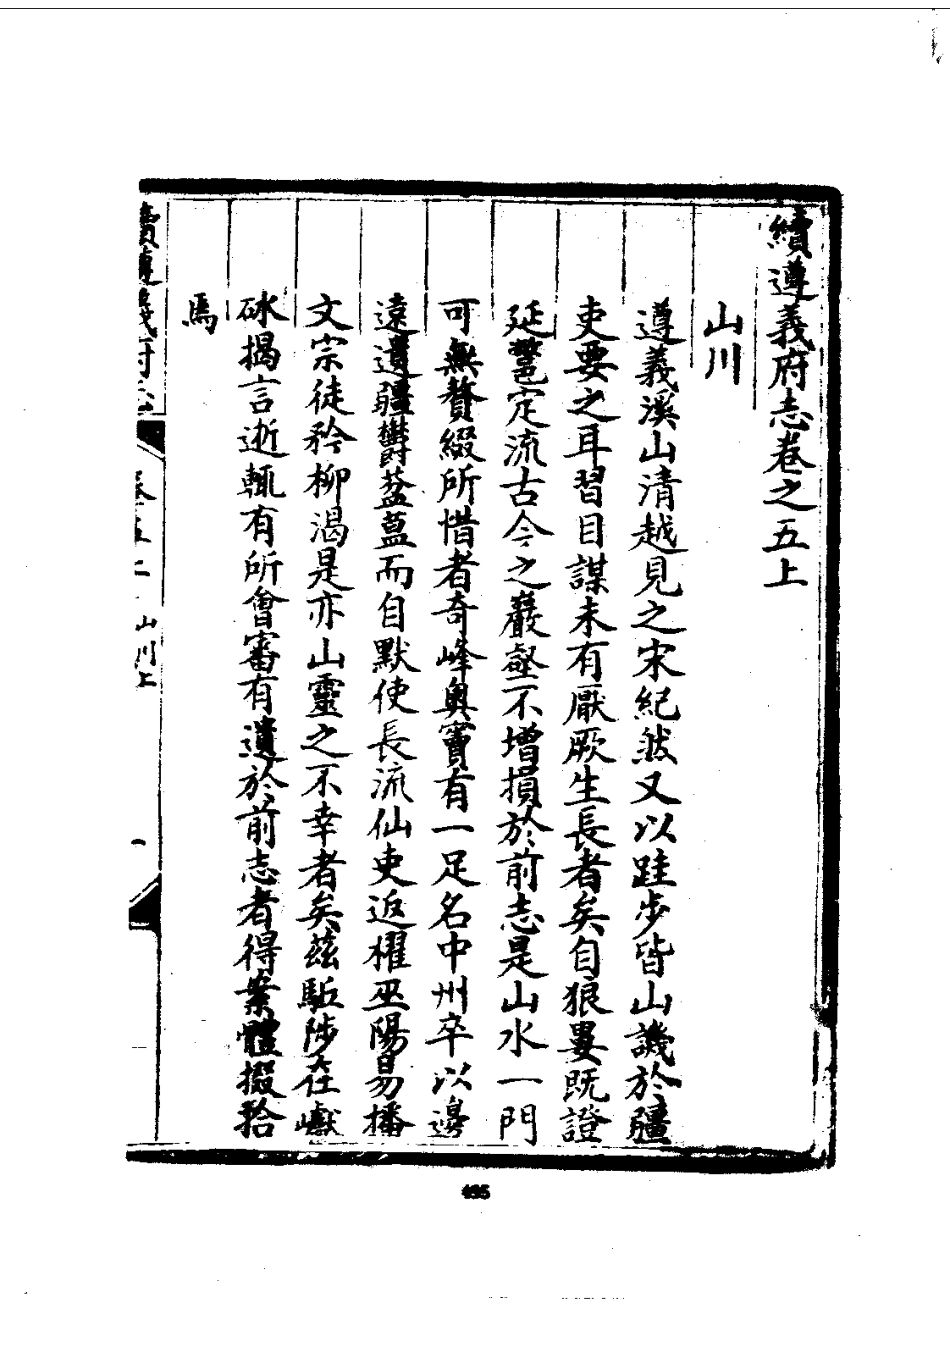 續遵義府志卷之五上
山川
遵義溪山清越見之宋紀然又以跬步皆山譏於疆
吏要之耳習目謀未有厭厥生長者矣自狼嬰既證
延鼈定流古今之巖壑不增損於前志是山水一門
可無贅綴所惜者奇峰奧竇有一足名中州卒以邊
遠遺疆鬱葢蒀而自默使長流仙吏返櫂巫陽易播
文宗徒矜柳渴是亦山靈之不幸者矣茲駈陟在巘
砅揭言逝輒有所會審有遺於前志者得案體掇拾
焉
續遵義府志 卷五上 山川上 一
495